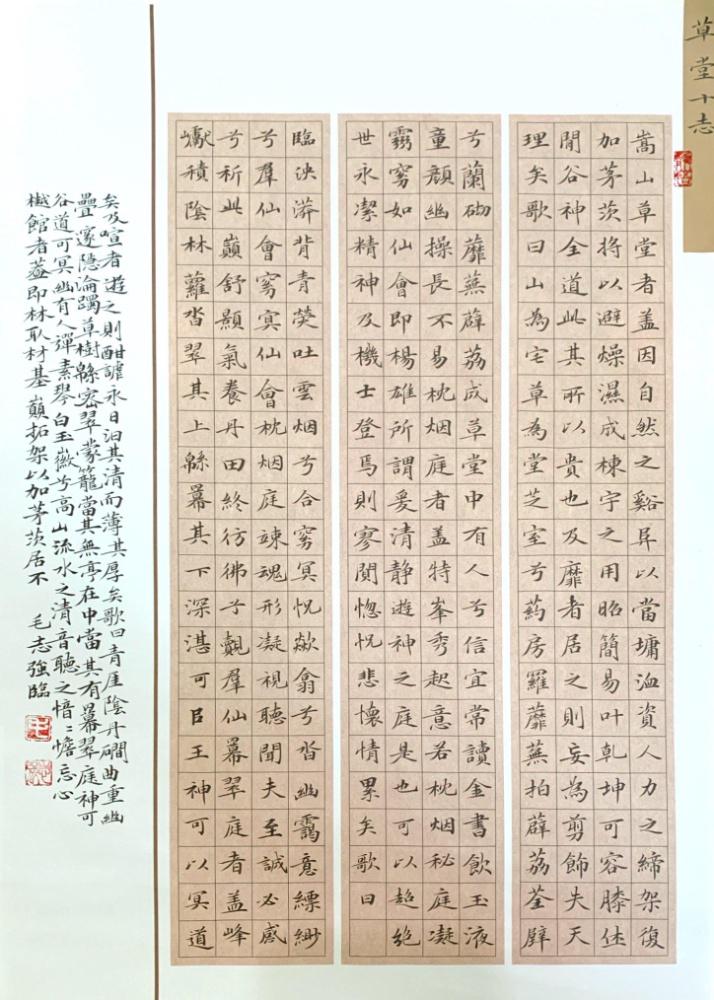 草堂十志
嵩山草堂者盖因自然之谿阜以當墉洫資人力之締架復
加茅茨将以避燥濕成棟宇之用昭簡易叶乾坤可容膝休
閒谷神全道此其所以貴也及靡者居之則妄為剪飾失天
理矣歌曰山為宅草為堂芝室兮葯房羅蘼蕪拍薜荔荃壁
兮蘭砌蘼蕪薜荔成草堂中有人兮信宜常讀金書飲玉液
童顔幽操長不易枕烟庭者盖特峯秀起意若枕烟秘庭凝
霧窈如仙會即楊雄所謂爰清静遊神之庭是也可以超絶
世永潔精神及機士登焉則寥閴惚怳悲懷情累矣歌曰
臨泱漭背青熒吐雲烟兮合窈冥怳歘翕兮沓幽靄意縹緲
兮羣仙會窈冥仙會枕烟庭竦魂形凝視聽聞夫至誠必感
兮祈此巔舒顥氣養丹田終彷彿兮覿羣仙幕翠庭者盖峰
巘積陰林蘿沓翠其上緜幕其下深湛可㠯王神可以冥道
矣及喧者遊之則酣謔永日汩其清而薄其厚矣歌曰青厓陰丹磵曲重幽
疊邃隱淪躅草樹緜宻翠蒙籠當其無亭在中當其有幕翠庭神可
谷道可冥幽有人彈素琴白玉徽兮高山流水之清音聽之愔〻憺忘心
樾館者盖即林取材基巔拓架以加茅茨居不
毛志強臨